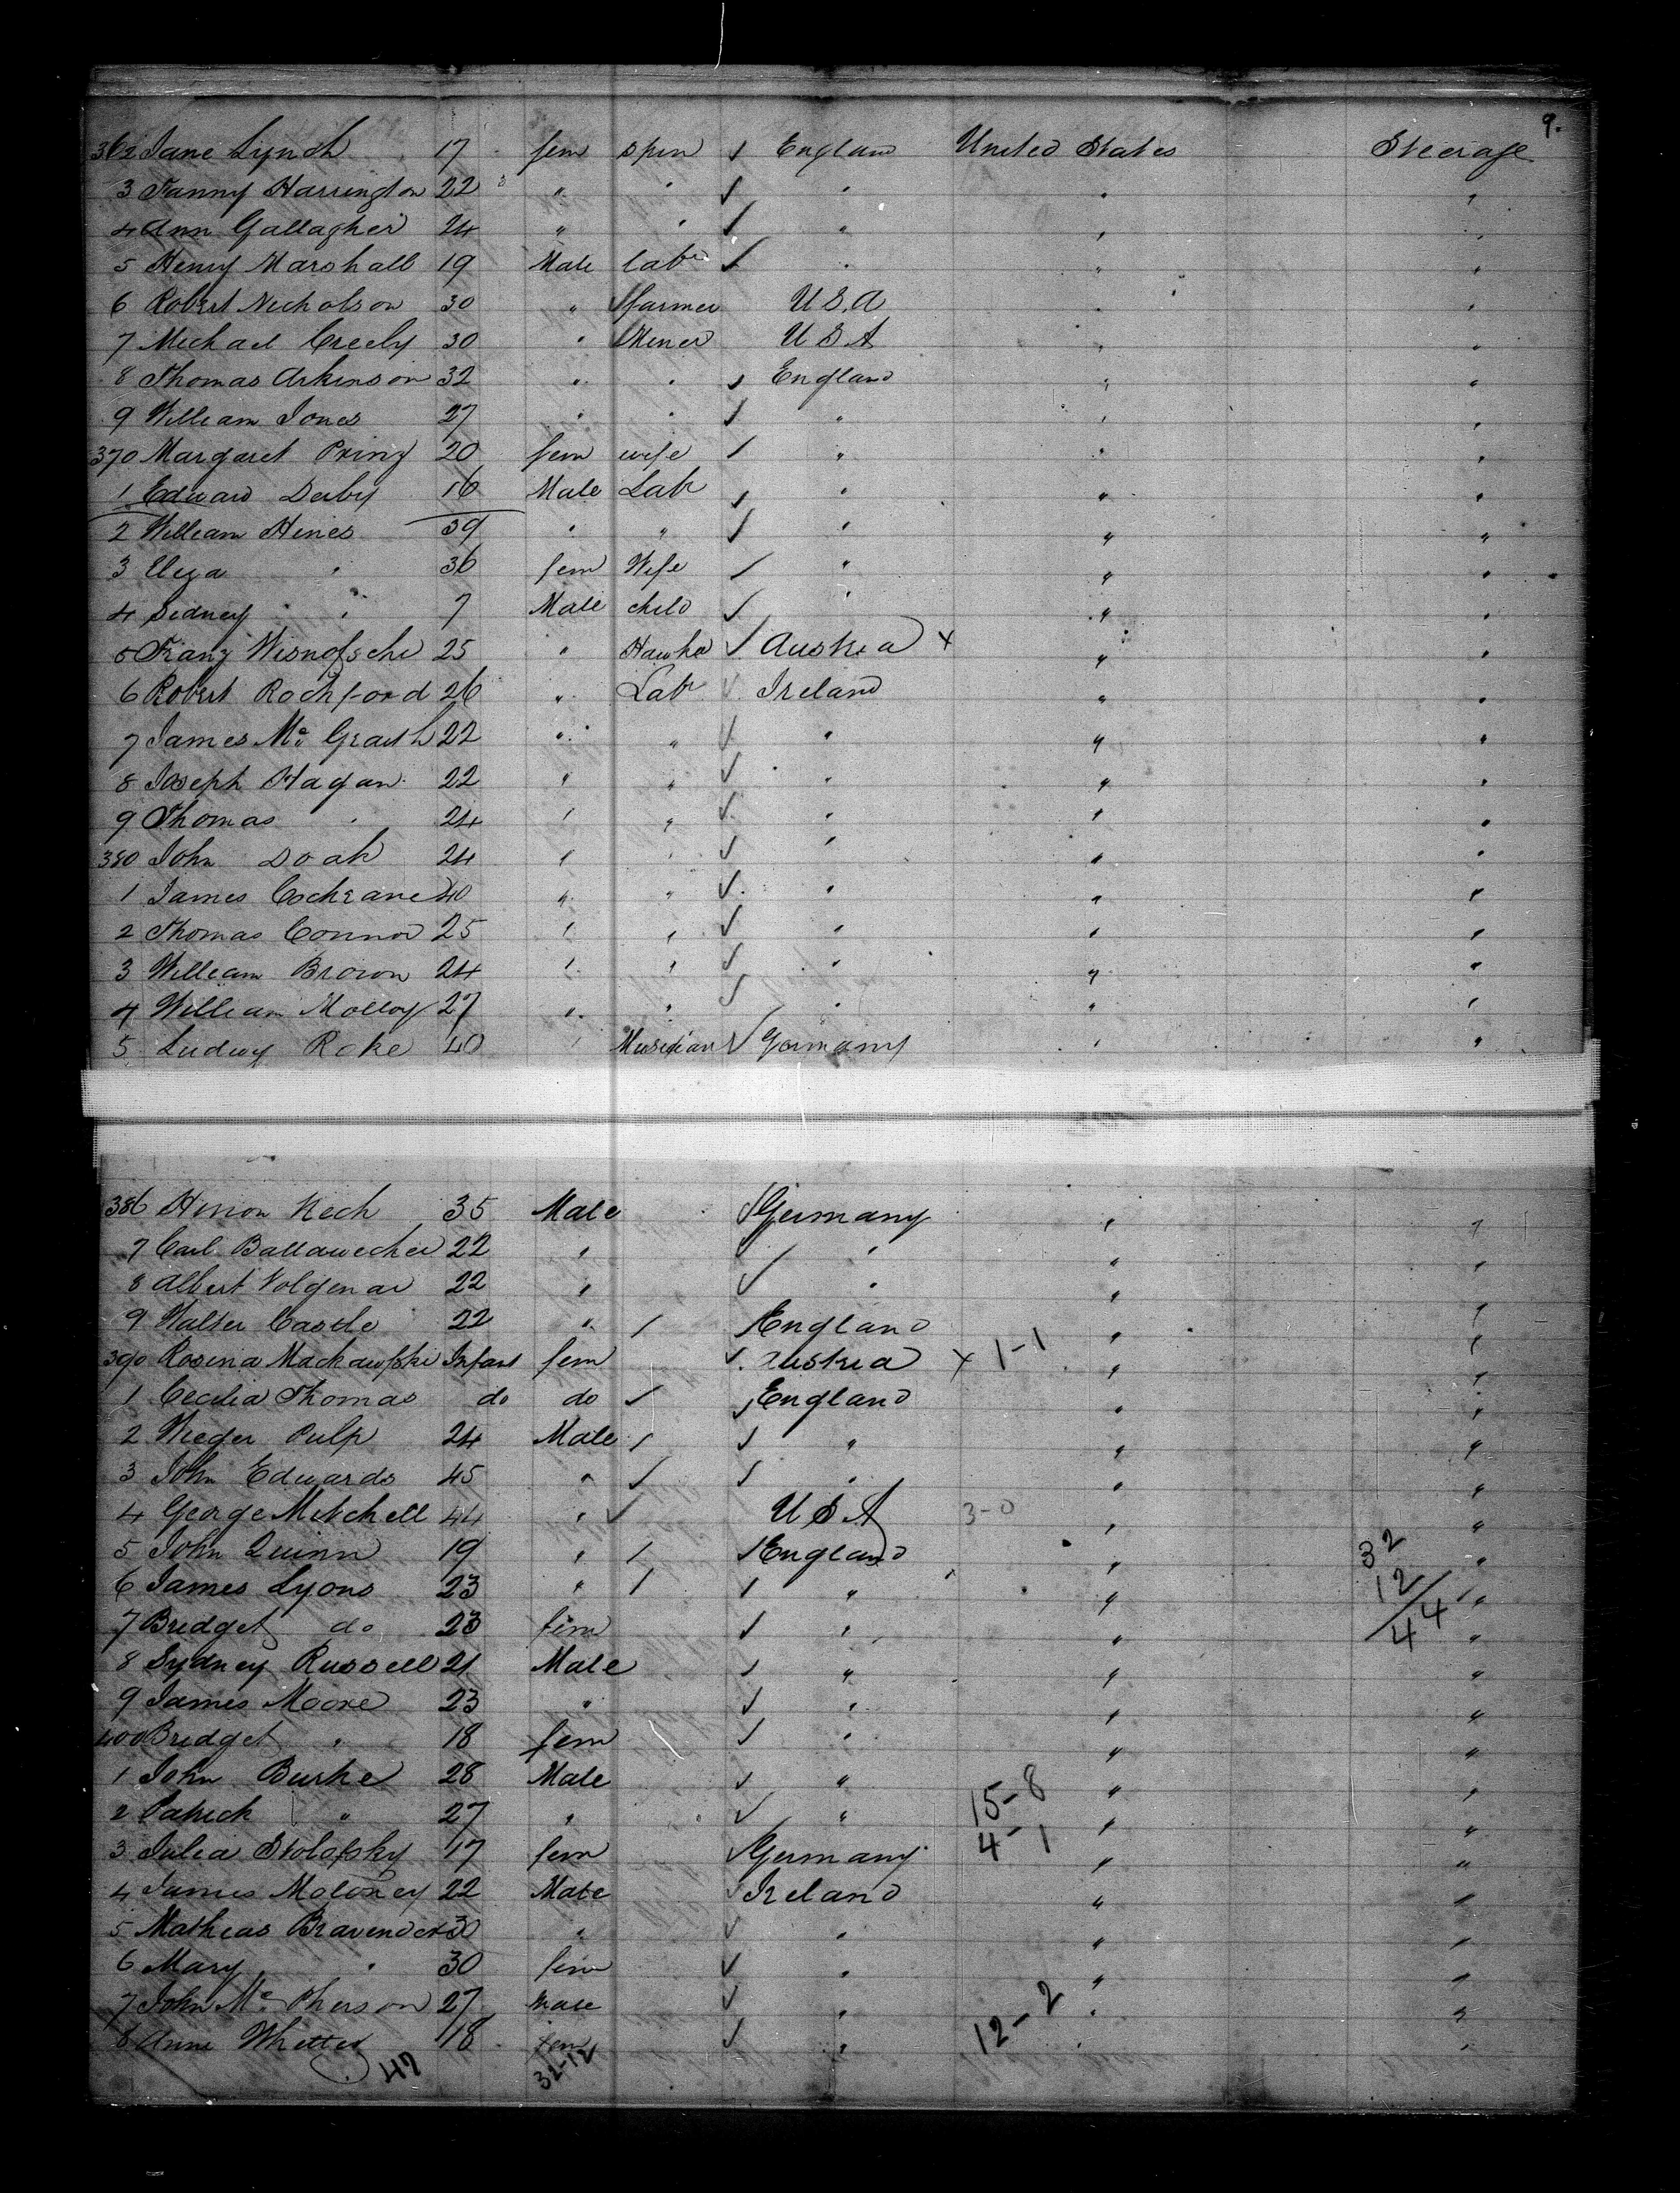 9.
362 Jane Lynch 17 fem spin ✓ England United States Steerage
3 Fanny Harrington 22 " " ✓ " " "
4 Ann Gallagher 24 " " ✓ " " "
5 Henry Marshall 19 Male labr ✓ " " "
6 Robert Nicholson 30 " ✓ farmer U S. A " "
7 Michael Creely 30 " Miner U S A " "
8 Thomas Arkinson 32 " " ✓ England " "
9 William Jones 27 " " ✓ " " "
370 Margaret Pring 20 fem wife ✓ " " "
1 Edward Derby 16 Male Labr ✓ " " "
2 William Hines 39 " " ✓ " " "
3 Eliza " 36 fem Wife ✓ " " "
4 Sidney " 7 Male child ✓ " " "
5 Franz Wisnofsche 25 " Hawker ✓ Austria x " "
6 Robert Rochford 26 " Labr ✓ Ireland " "
7 James Mc Grath 22 " " ✓ " " "
8 Joseph Hagan 22 " " ✓ " " "
9 Thomas " 24 " " ✓ " " "
380 John Doak 24 " " ✓ " " "
1 James Cochrane 40 " " ✓ " " "
2 Thomas Connor 25 " " ✓ " " "
3 William Brown 24 " " ✓ " " "
4 William Molloy 27 " " ✓ " " "
5 Ludwig Roke 40 " Musician ✓ Germany " "
386 Hinon Nech 35 Male ✓ Germany " "
7 Carl Ballawecher 22 " ✓ " " "
8 Albert Volgenar 22 " ✓ " " "
9 Walter Castle 22 " ✓ ✓ England " "
390 Rosina Mackawfski Infant fem ✓ Austria x 1-1 " "
1 Cecilia Thomas do do ✓ ✓ England " "
2 Wreger Pulp 24 Male ✓ ✓ " " "
3 John Edwards 45 " ✓ ✓ " " "
4 George Mitchell 44 " ✓ U S A 3-0 " "
5 John Quinn 19 " ✓ ✓ England " 32 "
6 James Lyons 23 " ✓ ✓ " " 12 "
7 Bridget do 23 fem ✓ " " 44 "
8 Sydney Russell 21 Male ✓ " " "
9 James Moore 23 " ✓ " " "
400 Bridget " 18 fem ✓ " " "
1 John Burke 28 Male ✓ " 15-8 " "
2 Patrick " 27 " ✓ " " "
3 Julia Stolofsky 17 fem ✓ Germany 4-1 " "
4 James Moloney 22 Male ✓ Ireland " "
5 Mathias Bravender 30 " ✓ " " "
6 Mary " 30 fem ✓ " " "
7 John Mc Pherson 27 Male ✓ " " "
8 Anne Whetter 18 fem ✓ " 12-2 " "
47 32-12